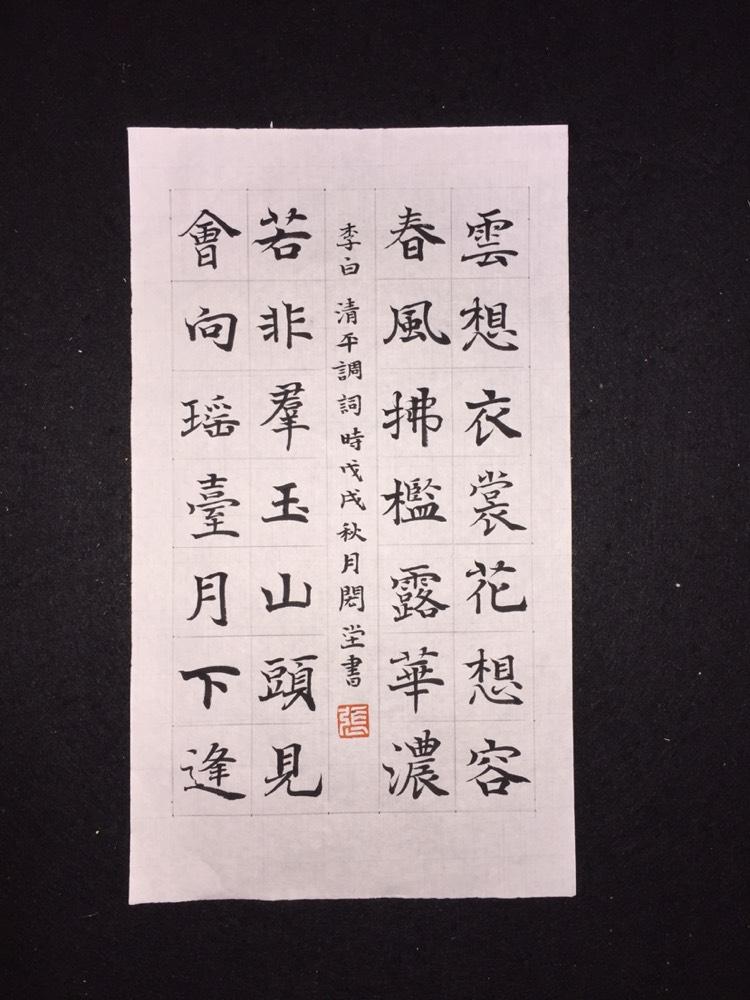 雲想衣裳花想容
春風拂檻露華濃
李白 清平調詞時戊戌秋月閎堂書
張
若非羣玉山頭見
會向瑶臺月下逢